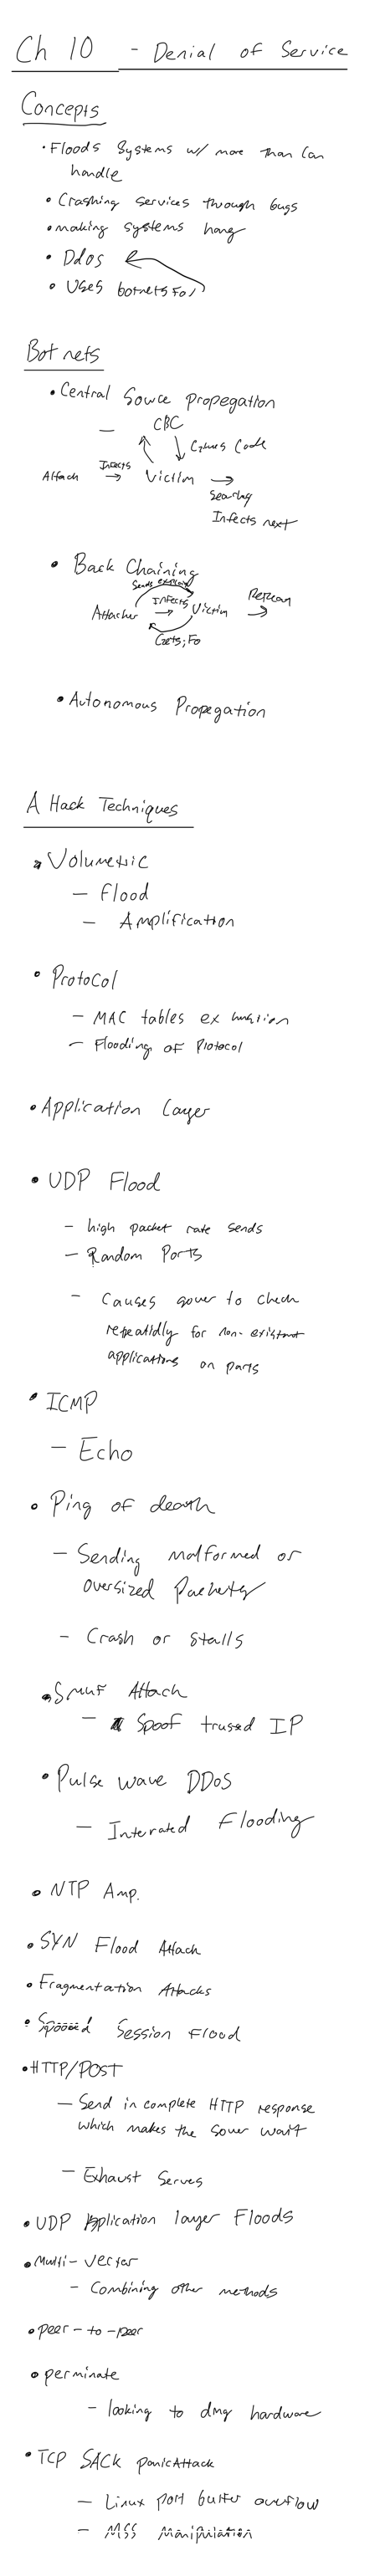 Ch 10 - Denial of Service
Concepts
• Floods Systems w/ more than can
handle
• Crashing services through bugs
• making systems hang
• DdoS
• Uses botnets For
Botnets
• Central Source Propegation
— CBC
Copies Code
Attack Infects → Victim →
Searching
Infects next
• Back Chaining
Sends exploit
Attacker Infects → Victim →
Gets; Fo
• Autonomous Propegation
Attack Techniques
• Volumetric
— Flood
— Amplification
• Protocol
— MAC tables exhaustion
— Flooding of Protocol
• Application Layer
• UDP Flood
— high packet rate sends
— Random Ports
— Causes server to check
repeatidly for non-existant
applications on ports
• ICMP
— Echo
• Ping of death
— Sending malformed or
oversized Packets
— Crash or stalls
• Smurf Attack
— Spoof trused IP
• Pulse wave DDoS
— Interated Flooding
• NTP Amp.
• SYN Flood Attack
• Fragmentation Attacks
• Spoofed Session Flood
• HTTP/POST
— Send in complete HTTP response
which makes the server wait
— Exhaust Serves
• UDP Application layer Floods
• Multi-vector
- Combining other methods
• peer-to-peer
• perminate
— looking to dmg hardware
• TCP SACK panic Attack
— Linux port buffer overflow
— MSS Manipulation